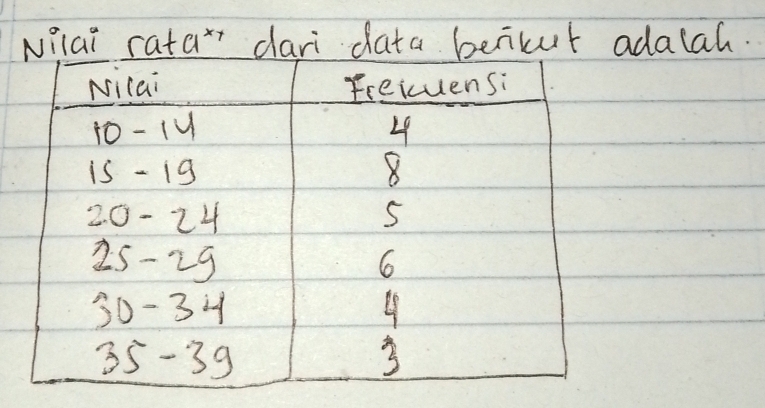 Nilai rata" dari data berikut adalah.
Nilai Frekuensi
10 - 14 4
15 - 19 8
20 - 24 5
25 - 29 6
30 - 34 4
35 - 39 3